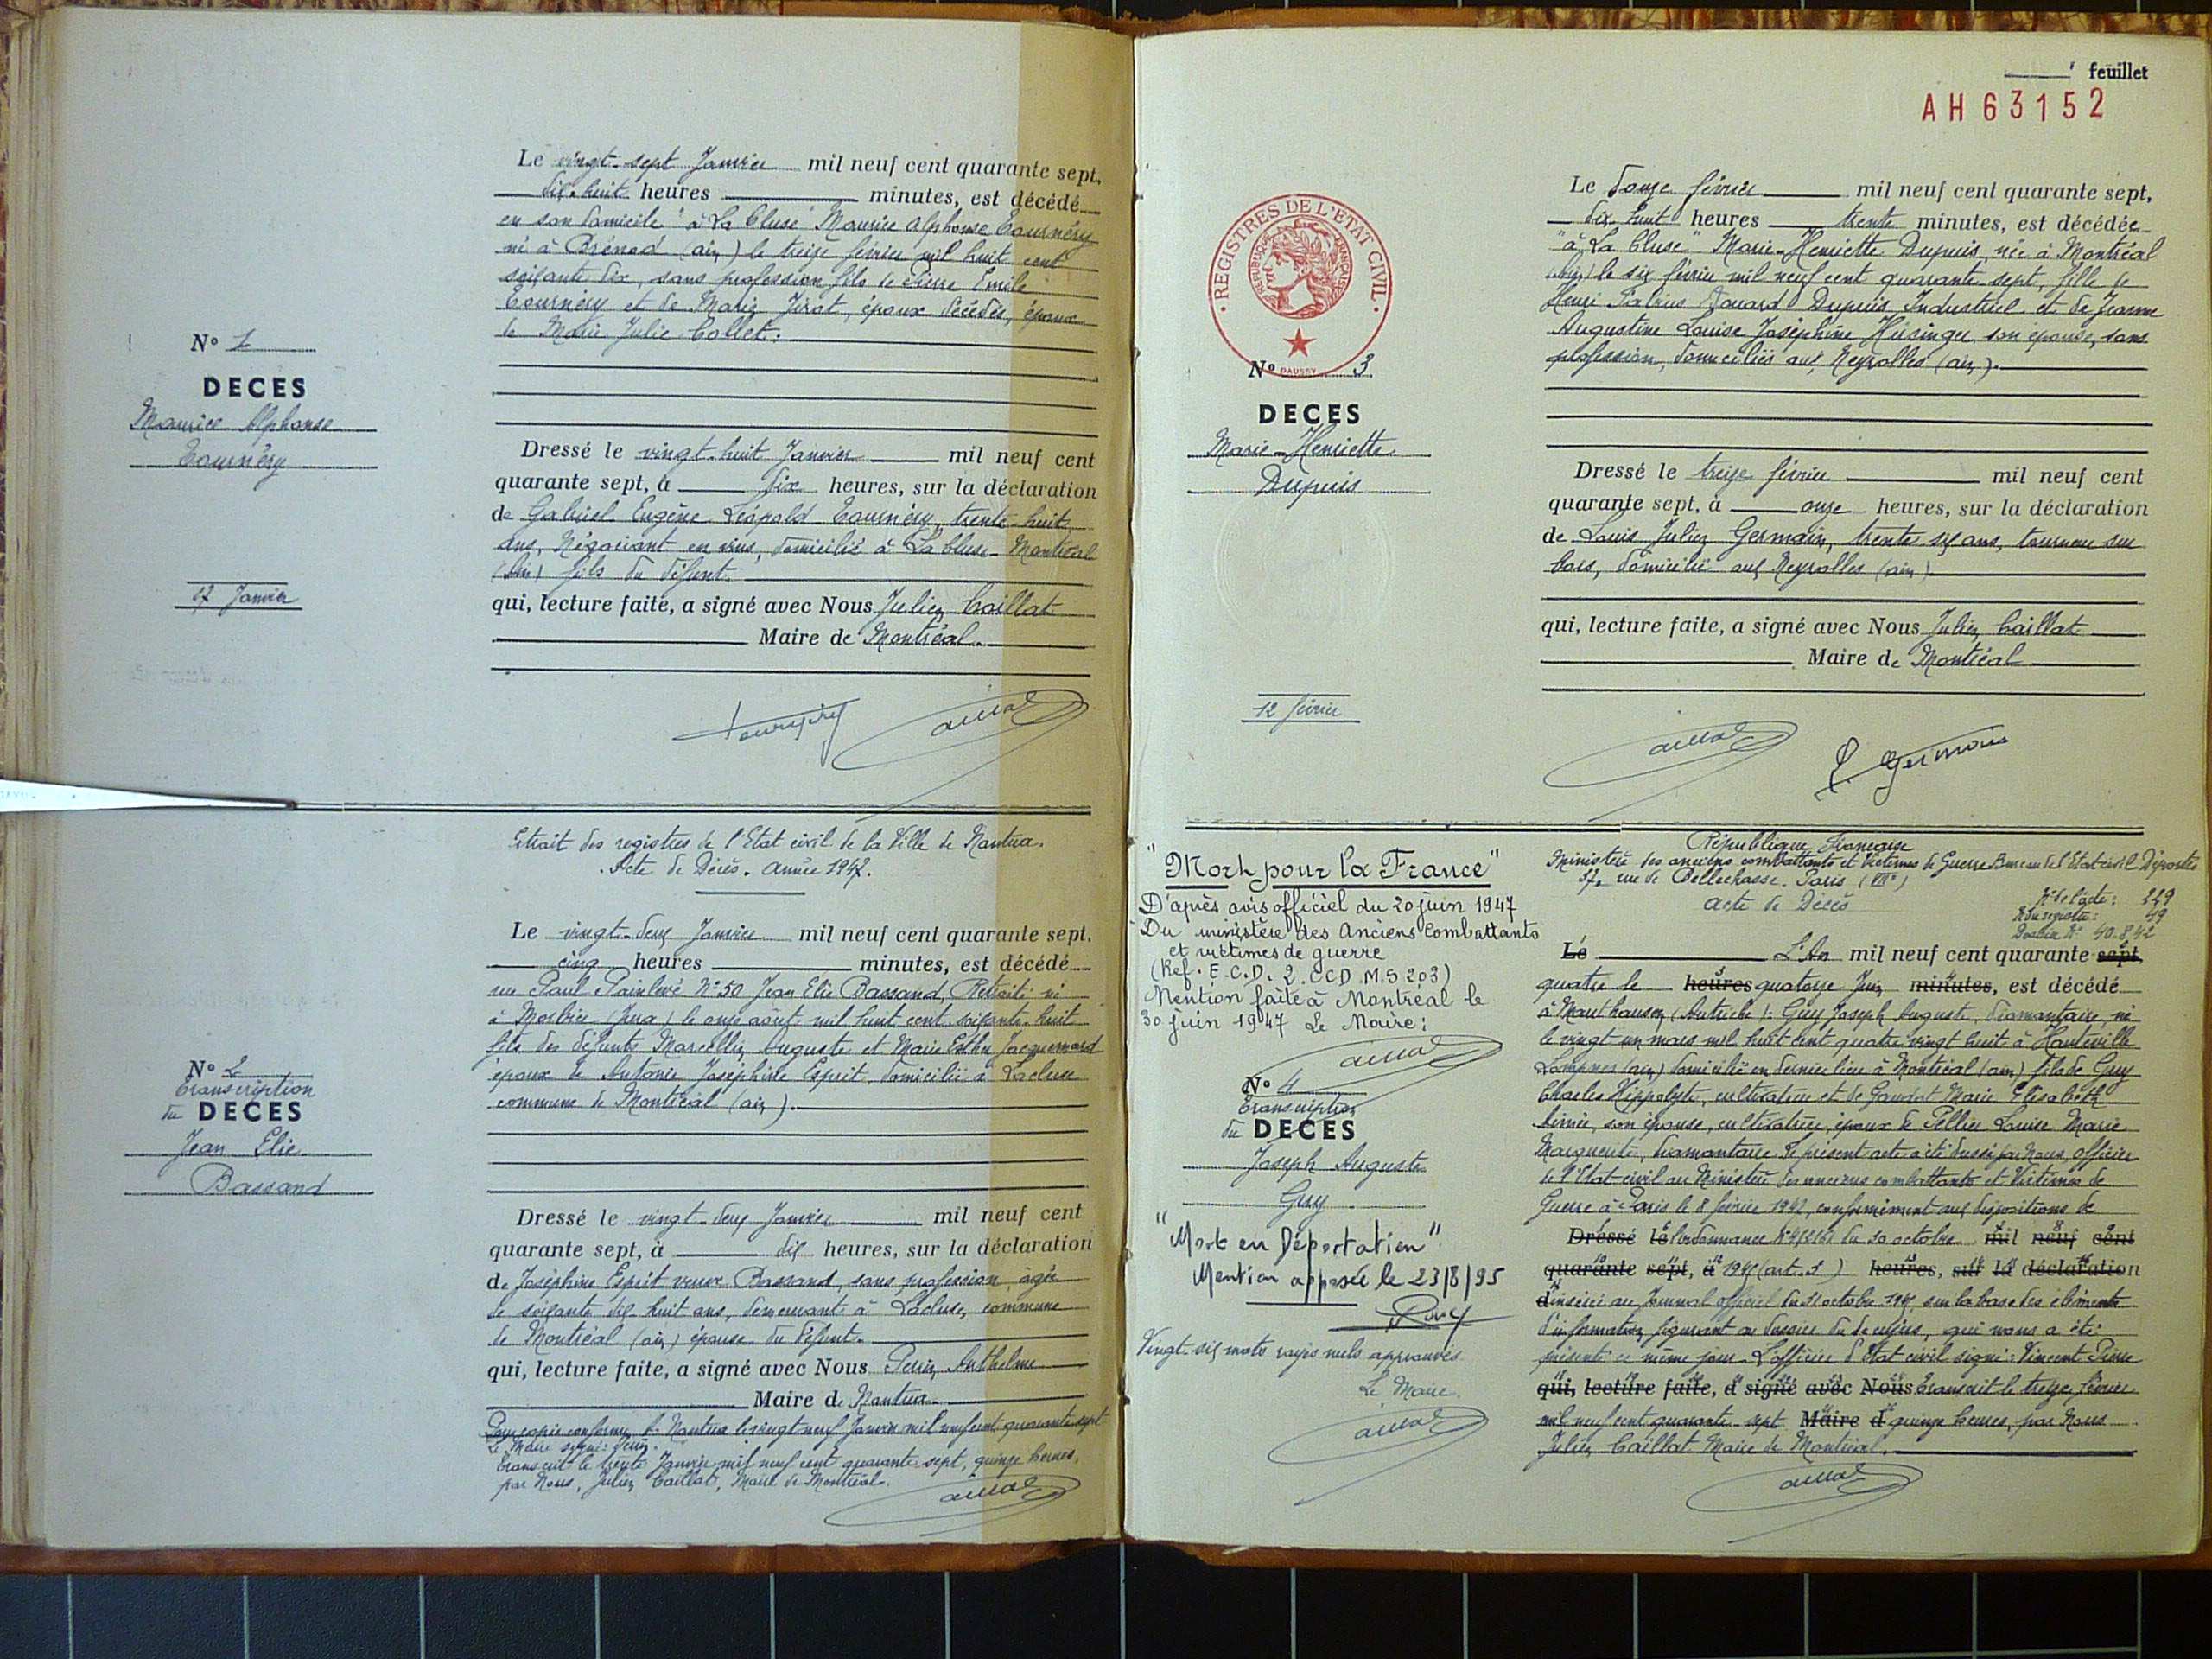 Le vingt-sept Janvier mil neuf cent quarante sept,
dix-huit heures minutes, est décédé
en son domicile "à La Cluse" Maurice Alphonse Tournéry
né à Brénod (Ain) le treize février mil huit cent
soixante dix, sans profession fils de Pierre Emile
Tournéry et de Marie Jirot, époux décédés, époux
de Marie Julie Collet.
N° 1
DECES
Maurice Alphonse
Tournéry
27 Janvier
Dressé le vingt-huit Janvier mil neuf cent
quarante sept, à dix heures, sur la déclaration
de Gabriel Eugène Léopold Tournéry, trente-huit
ans, Négociant en vins, domicilié à La Cluse-Montréal
(Ain) fils du défunt.
qui, lecture faite, a signé avec Nous Julien Caillat
Maire de Montréal.
Extrait des registres de l'Etat civil de la Ville de Nantua.
Acte de Décès. Année 1947.
Le vingt-deux Janvier mil neuf cent quarante sept,
cinq heures minutes, est décédé
rue Paul Painlevé N° 50 Jean Elie Bassand, Retraité né
à Morbier (Jura) le onze août mil huit cent soixante-huit
fils des défunts Marcellin Auguste et Marie Esther Jacquemard
époux de Antonie Joséphine Esprit, domicilié à Lacluse
commune de Montréal (ain).
N° 2
Transcription
du DECES
Jean Elie
Bassand
Dressé le vingt-deux Janvier mil neuf cent
quarante sept, à dix heures, sur la déclaration
de Joséphine Esprit veuve Bassand, sans profession, âgée
de soixante dix huit ans, demeurant à Lacluse, commune
de Montréal (ain) épouse du défunt.
qui, lecture faite, a signé avec Nous Perrin, Anthelme
Maire de Nantua.
Pour copie conforme, à Nantua le vingt neuf Janvier mil neuf cent quarante sept
Le Maire signé: Perrin.
Transcrit le trente Janvier mil neuf cent quarante sept, quinze heures,
par Nous, Julien Caillat, Maire de Montréal.
feuillet
AH 63152
REGISTRES DE L'ETAT CIVIL
REPUBLIQUE FRANÇAISE
DAUSSY
Le douze février mil neuf cent quarante sept,
dix huit heures trente minutes, est décédée
"à La Cluse" Marie-Henriette Dupuis, née à Montréal
(Ain) le six février mil neuf cent quarante sept, fille de
Henri Dupuis Industriel et de Jeanne
Augustine Louise Joséphine son épouse, sans
profession, domiciliés aux Neyrolles (ain).
N° 3
DECES
Marie-Henriette
Dupuis
12 février
Dressé le treize février mil neuf cent
quarante sept, à onze heures, sur la déclaration
de Louis Julien Germain, trente six ans, tourneur sur
bois, domicilié aux Neyrolles (ain).
qui, lecture faite, a signé avec Nous Julien Caillat
Maire de Montréal
L. Germain
"Mort pour la France"
D'après avis officiel du 20 juin 1947
Du ministère des Anciens Combattants
et victimes de guerre
(Ref. E.C.D. 2. CCD.M.S 203)
Mention faite à Montréal le
30 juin 1947 Le Maire:
N° 4
Transcription
du DECES
Joseph Auguste
Guy
"Mort en Déportation"
Mention apposée le 23/8/95
Vingt-six mots rayés nuls approuvés.
Le Maire.
République Française
Ministère des anciens combattants et Victimes de Guerre Bureau de l'Etat-civil Déportés
37, rue de Bellechasse. Paris (VIIe)
Acte de Décès
N° de l'acte: 229
N° du registre: 49
Dossier N° 40.842
Le L'An mil neuf cent quarante sept,
quatre le heures quatorze Juin minutes, est décédé
à Mauthausen (Autriche): Guy Joseph Auguste, diamantaire, né
le vingt un mars mil huit cent quatre vingt huit à Hauteville
Lompnes (ain) domicilié en dernier lieu à Montréal (ain) fils de Guy
Charles Hippolyte, cultivateur et de Gaudet Marie Elisabeth
Aimée, son épouse, cultivatrice, époux de Pellier Louise Marie
Marguerite, diamantaire. Le présent acte a été dressé par Nous, officier
de l'Etat-civil au Ministère des anciens combattants et Victimes de
Guerre à Paris le 8 février 1947, conformément aux dispositions de
Dressé le l'ordonnance N° du 30 octobre mil neuf cent
quarante sept, à 1945 (art. 3) heures, sur la déclaration
d'inséré au Journal officiel du 31 octobre 1945, sur la base des éléments
d'information figurant au dossier du de cujus, qui nous a été
présenté ce même jour. L'officier d'Etat civil signé: Vincent Pierre
qui, lecture faite, a signé avec Nous Transcrit le treize février
mil neuf cent quarante-sept Maire d quinze heures, par Nous
Julien Caillat Maire de Montréal.